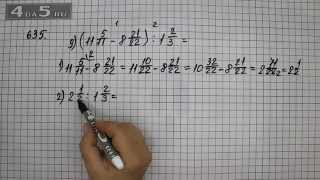 4DA5.RU
635.
1 2
2) (11 5/11 - 8 21/22) : 1 2/3 =
1) 11 5/11 \2 - 8 21/22 = 11 10/22 - 8 21/22 = 10 32/22 - 8 21/22 = 2 11/22 = 2 1/2
2) 2 1/2 : 1 2/3 =